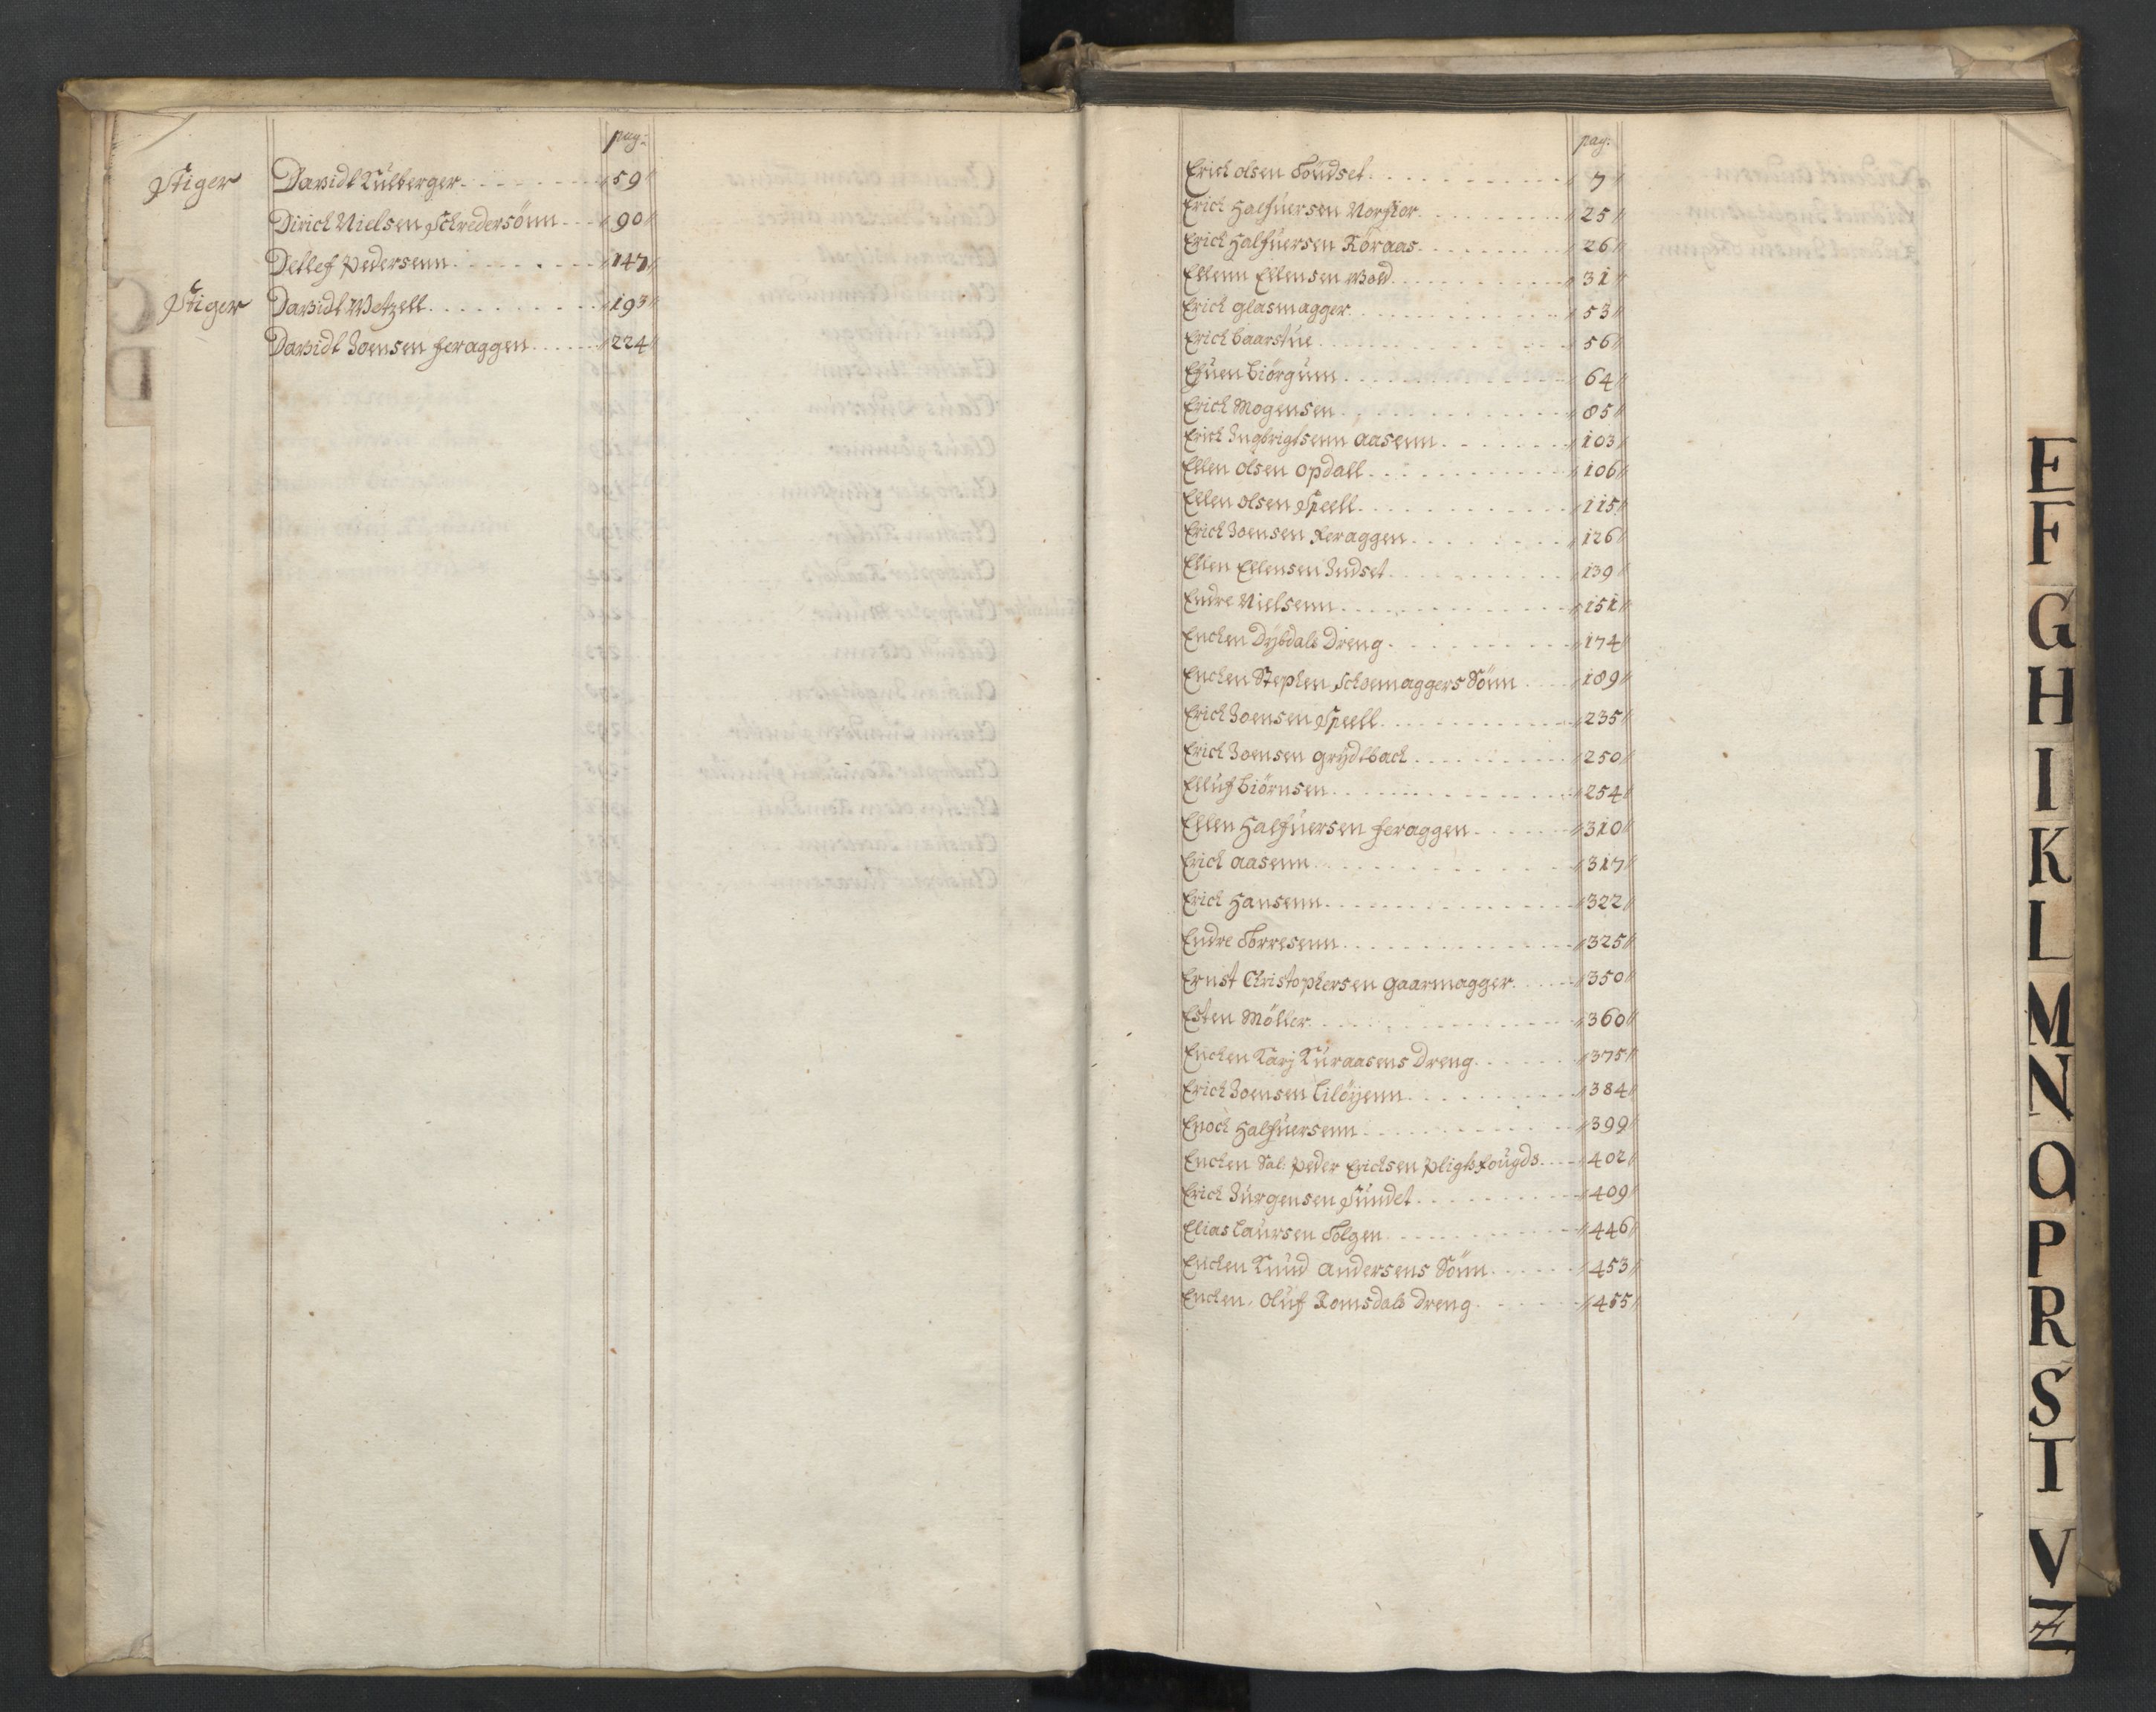 pag:
Stiger Davidt Külberger 59
Dirich Nielsen Schredersönn 90
Detlef Pedersenn 147
Stiger Davidt Wetzell 193
Davidt Joensen feraggen 224
C
D
pag:
Erich olsen Töndset 7
Erich Halfuersen Norskor 25
Erich Halfuersen Röraas 26
Ellenn Ellensen Wold 31
Erich glasmagger 53
Erich baarstüe 56
Efüen biörgüm 64
Erich Mogensen 85
Erich Ingbrigtsenn aasenn 103
Ellen olsen opdall 106
Ellen olsen Speell 115
Erich Joensen Feraggen 126
Ellen Ellensen Indset 139
Endre Nielsenn 151
Enchen Dybdals Dreng 174
Enchen Stephen Schoemaggers Sönn 189
Erich Joensen Speell 235
Erich Joensen grydtbach 250
Ellüf biörnsen 254
Ellen Halfüersen feraggen 310
Erich aasenn 317
Erich Hansenn 322
Endre Torresenn 325
Ernst Christophersen gaarmagger 350
Esten Möller 360
Enchen Karj Küraasens Dreng 375
Erich Joensen Lilöyenn 384
Enoch Halfüersenn 399
Enchen Sal: Peder Erichsen Pligtsfougds 402
Erich Jürgensen Sündet 409
Elias Laursen Tolgen 446
Enchen Knüd andersens Sönn 453
Enchen Olüf Romsdals Dreng 455
E
F
G
H
I
K
L
M
N
O
P
R
S
T
V
Z